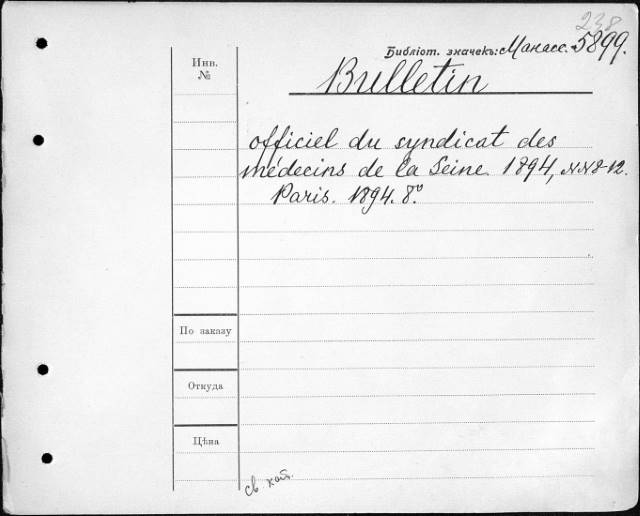 238
Библіот. значекъ: Манасс. 5899.
Инв.
№
Bulletin
officiel du syndicat des
médecins de la Seine. 1894, NN 8-12.
Paris. 1894. 8º.
По заказу
Откуда
Цѣна
св. кат.